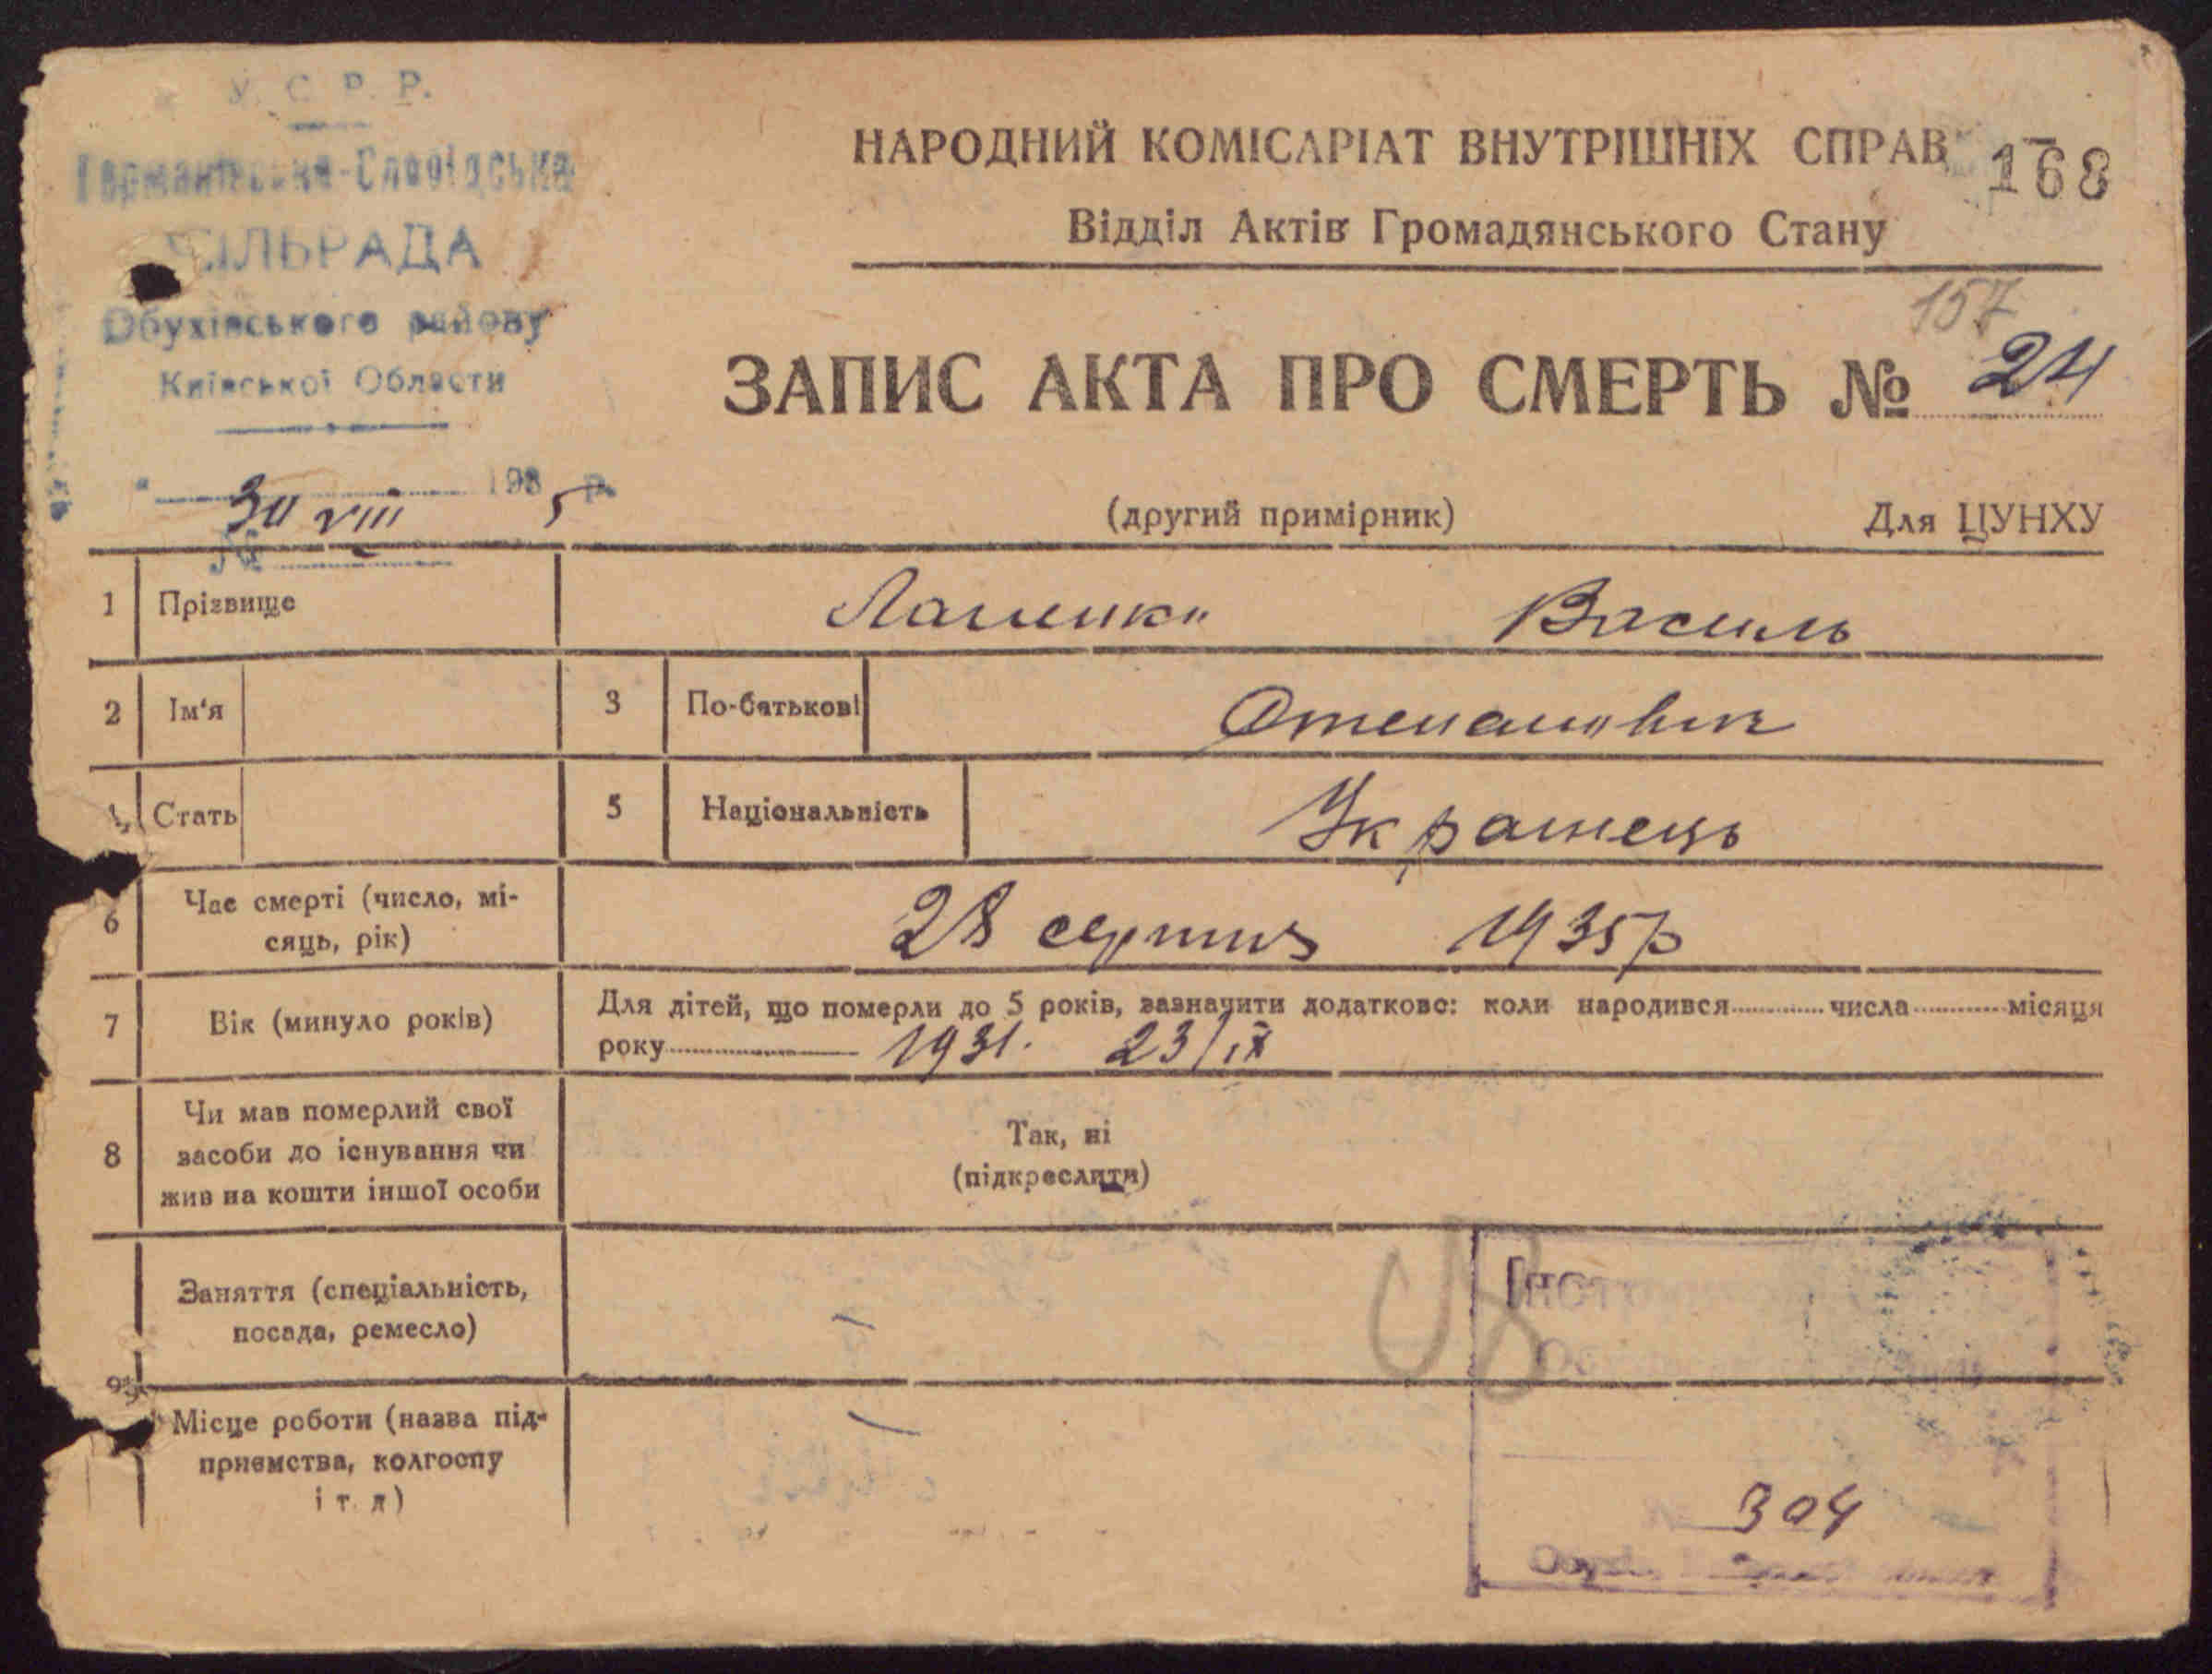 У. С. Р. Р.
Германівська-Слобідська
СІЛЬРАДА
Обухівського району
Київської Области
"30 VIII 1935 р.
№
НАРОДНИЙ КОМІСАРІАТ ВНУТРІШНІХ СПРАВ
168
Відділ Актів Громадянського Стану
157
ЗАПИС АКТА ПРО СМЕРТЬ № 24
(другий примірник) Для ЦУНХУ
1 Прізвище Василь
2 Ім'я 3 По-батькові Степанович
4 Стать 5 Національність Українець
6 Час смерті (число, мі-
сяць, рік) 28 серпня 1935р
7 Вік (минуло років) Для дітей, що померли до 5 років, зазначити додатково: коли народився числа місяця
року 1931. 23/IX
8 Чи мав померлий свої
засоби до існування чи
жив на кошти іншої особи
Так, ні
(підкреслити)
Заняття (спеціальність,
посада, ремесло) —
9
Місце роботи (назва під-
приємства, колгоспу
і т. д) —
304